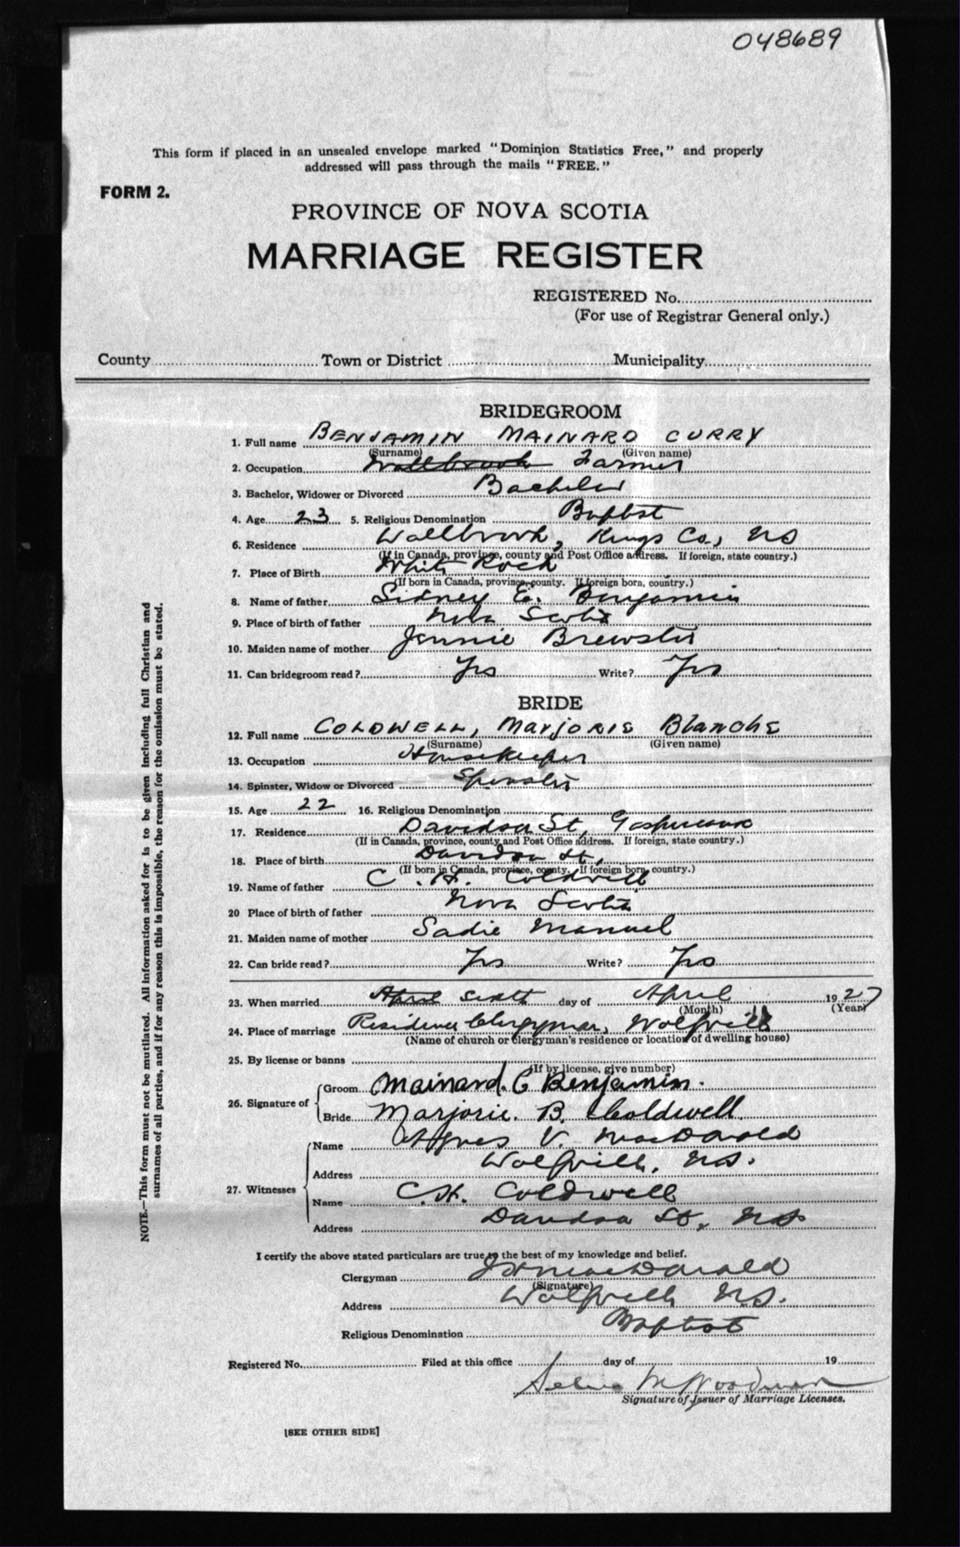 048689
This form if placed in an unsealed envelope marked "Dominion Statistics Free," and properly
addressed will pass through the mails "FREE."
FORM 2.
PROVINCE OF NOVA SCOTIA
MARRIAGE REGISTER
REGISTERED No.
(For use of Registrar General only.)
County Town or District Municipality
BRIDEGROOM
1. Full name BENJAMIN MAINARD CURRY
(Surname) (Given name)
2. Occupation Wallbrook Farmer
3. Bachelor, Widower or Divorced Bachelor
4. Age 23 5. Religious Denomination Baptist
6. Residence Wallbrook, Kings Co., NS
(If in Canada, province, county and Post Office address. If foreign, state country.)
7. Place of Birth White Rock
(If born in Canada, province, county. If foreign born, country.)
8. Name of father Sidney E. Benjamin
9. Place of birth of father Nova Scotia
10. Maiden name of mother Jennie Brewster
11. Can bridegroom read? Yes Write? Yes
BRIDE
12. Full name COLDWELL, Marjorie Blanche
(Surname) (Given name)
13. Occupation Housekeeper
14. Spinster, Widow or Divorced Spinster
15. Age 22 16. Religious Denomination
17. Residence Davidson St, Gaspereaux
(If in Canada, province, county and Post Office address. If foreign, state country.)
18. Place of birth Davidson St,
(If born in Canada, province, county. If foreign born, country.)
19. Name of father C. H. Coldwell
20 Place of birth of father Nova Scotia
21. Maiden name of mother Sadie Manuel
22. Can bride read? Yes Write? Yes
23. When married April sixth day of April 1927
(Month) (Year)
24. Place of marriage Residence Clergyman, Wolfville
(Name of church or clergyman's residence or location of dwelling house)
25. By license or banns
(If by license, give number)
26. Signature of
Groom Mainard C Benjamin.
Bride Marjorie. B. Coldwell
27. Witnesses
Name Agnes V. MacDonald
Address Wolfville, N.S.
Name C.H. Coldwell
Address Davidson St, NS
I certify the above stated particulars are true to the best of my knowledge and belief.
Clergyman MacDonald
(Signature)
Address Wolfville N.S.
Religious Denomination Baptist
Registered No. Filed at this office day of 19
Woodman
Signature of Issuer of Marriage Licenses.
[SEE OTHER SIDE]
NOTE.—This form must not be mutilated. All information asked for is to be given including full Christian and
surnames of all parties, and if for any reason this is impossible, the reason for the omission must be stated.